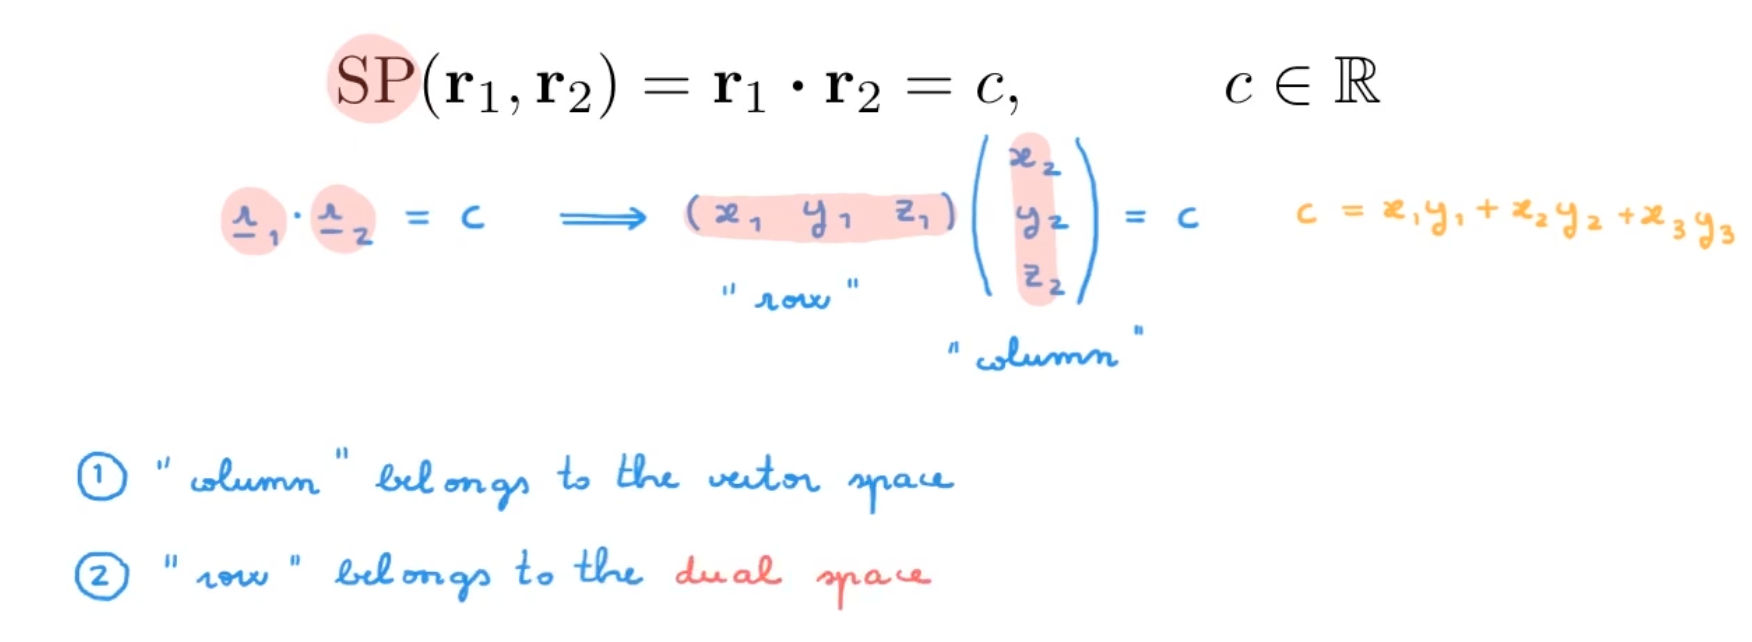 SP(r₁, r₂) = r₁ · r₂ = c, c ∈ ℝ
r₁ · r₂ = c ⟹ (x₁ y₁ z₁) (x₂ y₂ z₂) = c c = x₁y₁ + x₂y₂ + x₃y₃
"row"
"column"
① "column" belongs to the vector space
② "row" belongs to the dual space